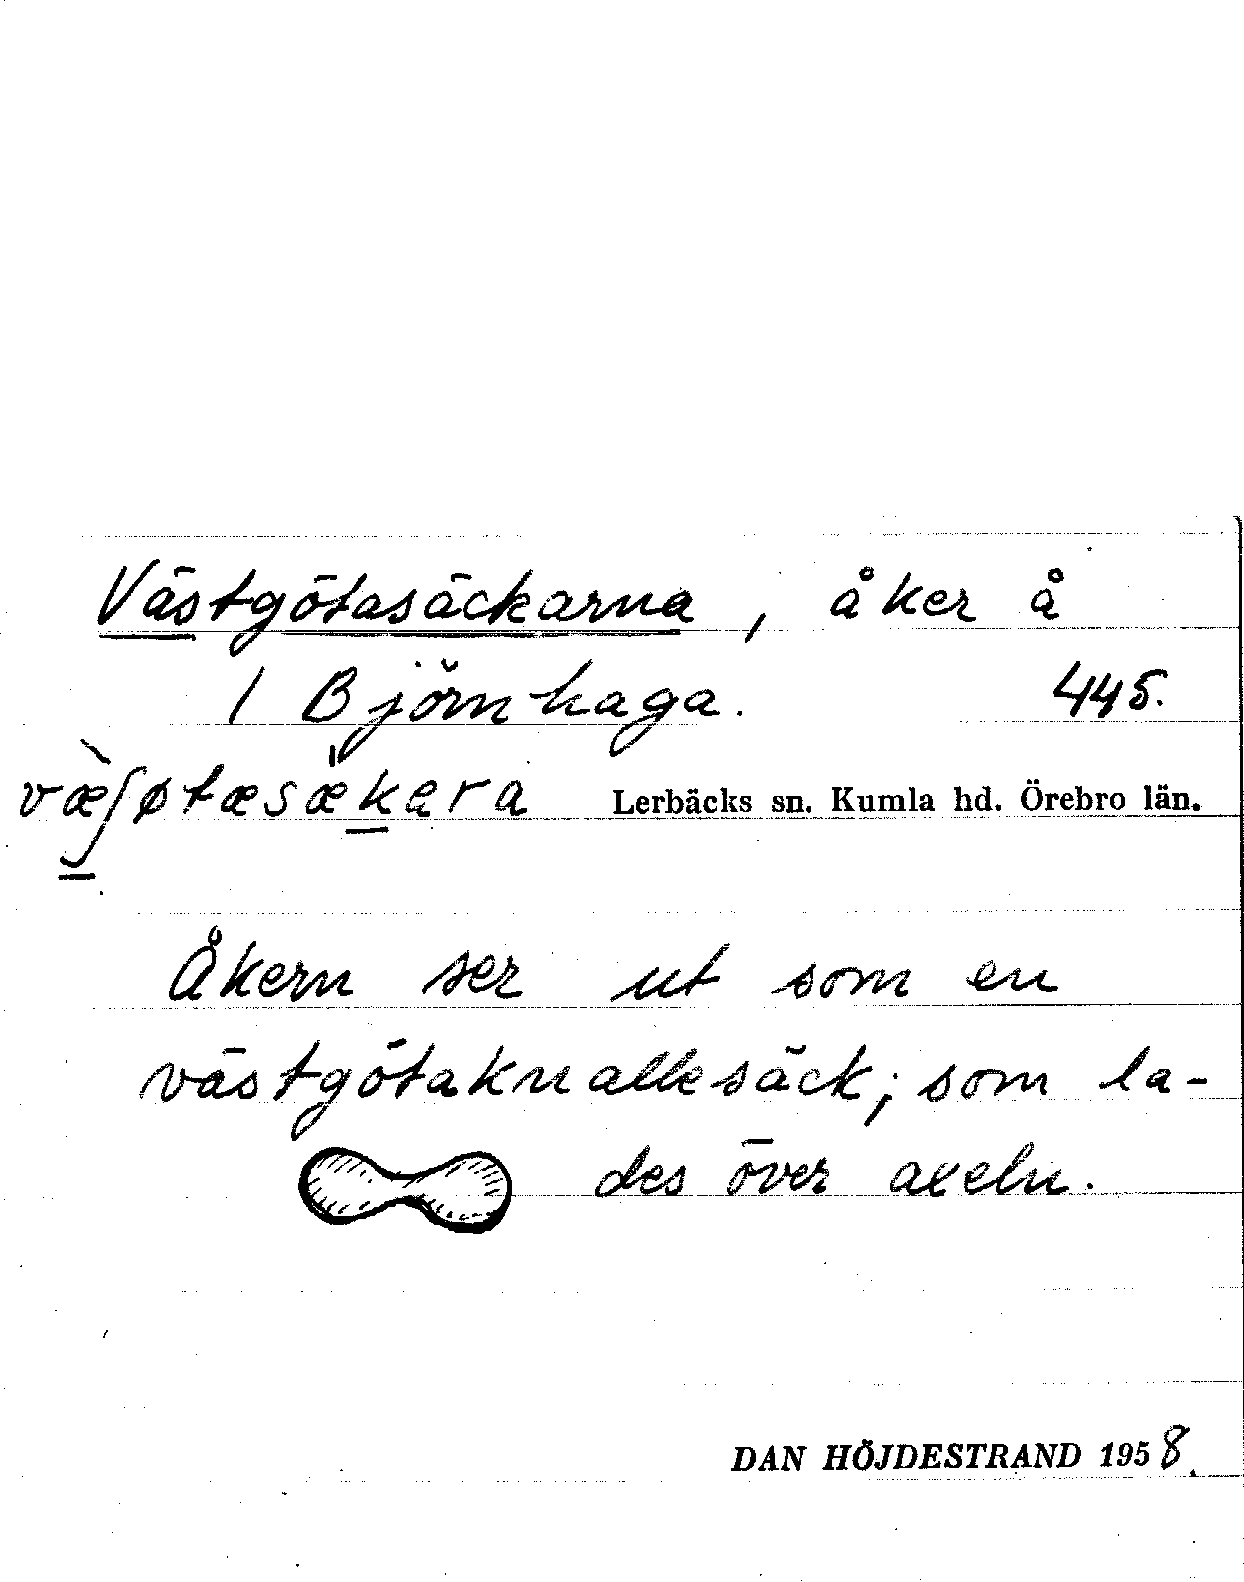 Västgötasäckarna, åker å
1 Björnhaga. 445.
væ̀ʃøtæsækara Lerbäcks sn. Kumla hd. Örebro län.
Åkern ser ut som en
västgötaknallesäck; som la-
des över axeln.
DAN HÖJDESTRAND 1958.